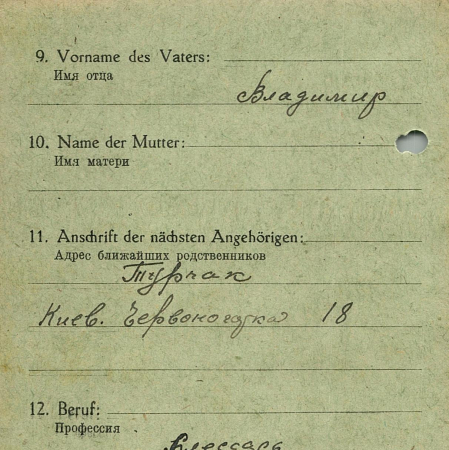 9. Vorname des Vaters:
Имя отца
Владимир
10. Name der Mutter:
Имя матери
11. Anschrift der nächsten Angehörigen:
Адрес ближайших родственников
Турчак
Киев. 18
12. Beruf:
Профессия